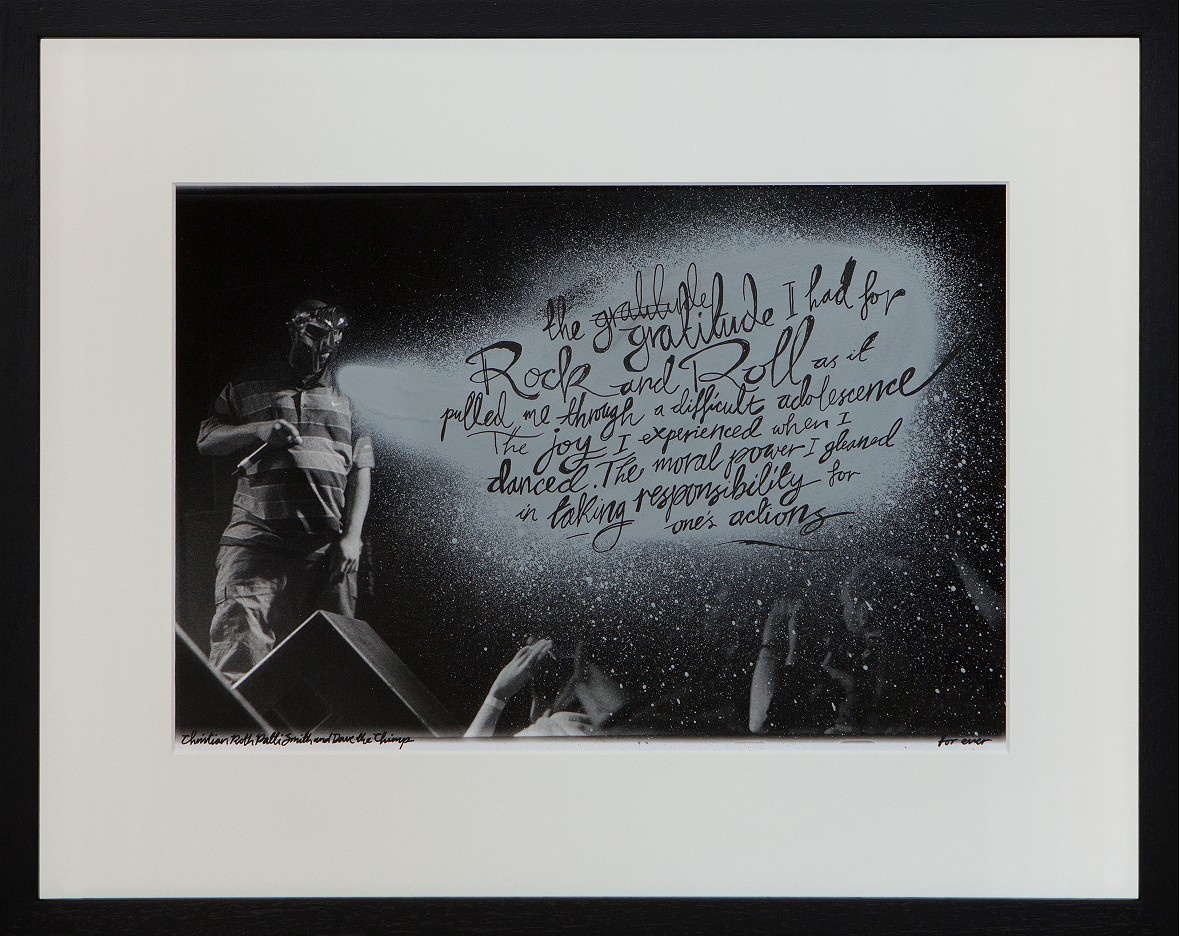 the gratitude
gratitude I had for
Rock and Roll as it
pulled me through a difficult adolescence
The joy I experienced when I
danced. The moral power I gleaned
in taking responsibility for
one's actions.
Christian Roth, Patti Smith and Dave the Chimp
for ever